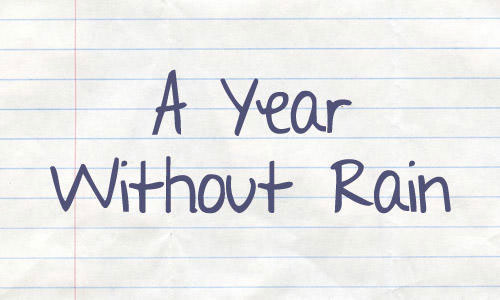 A Year
Without Rain